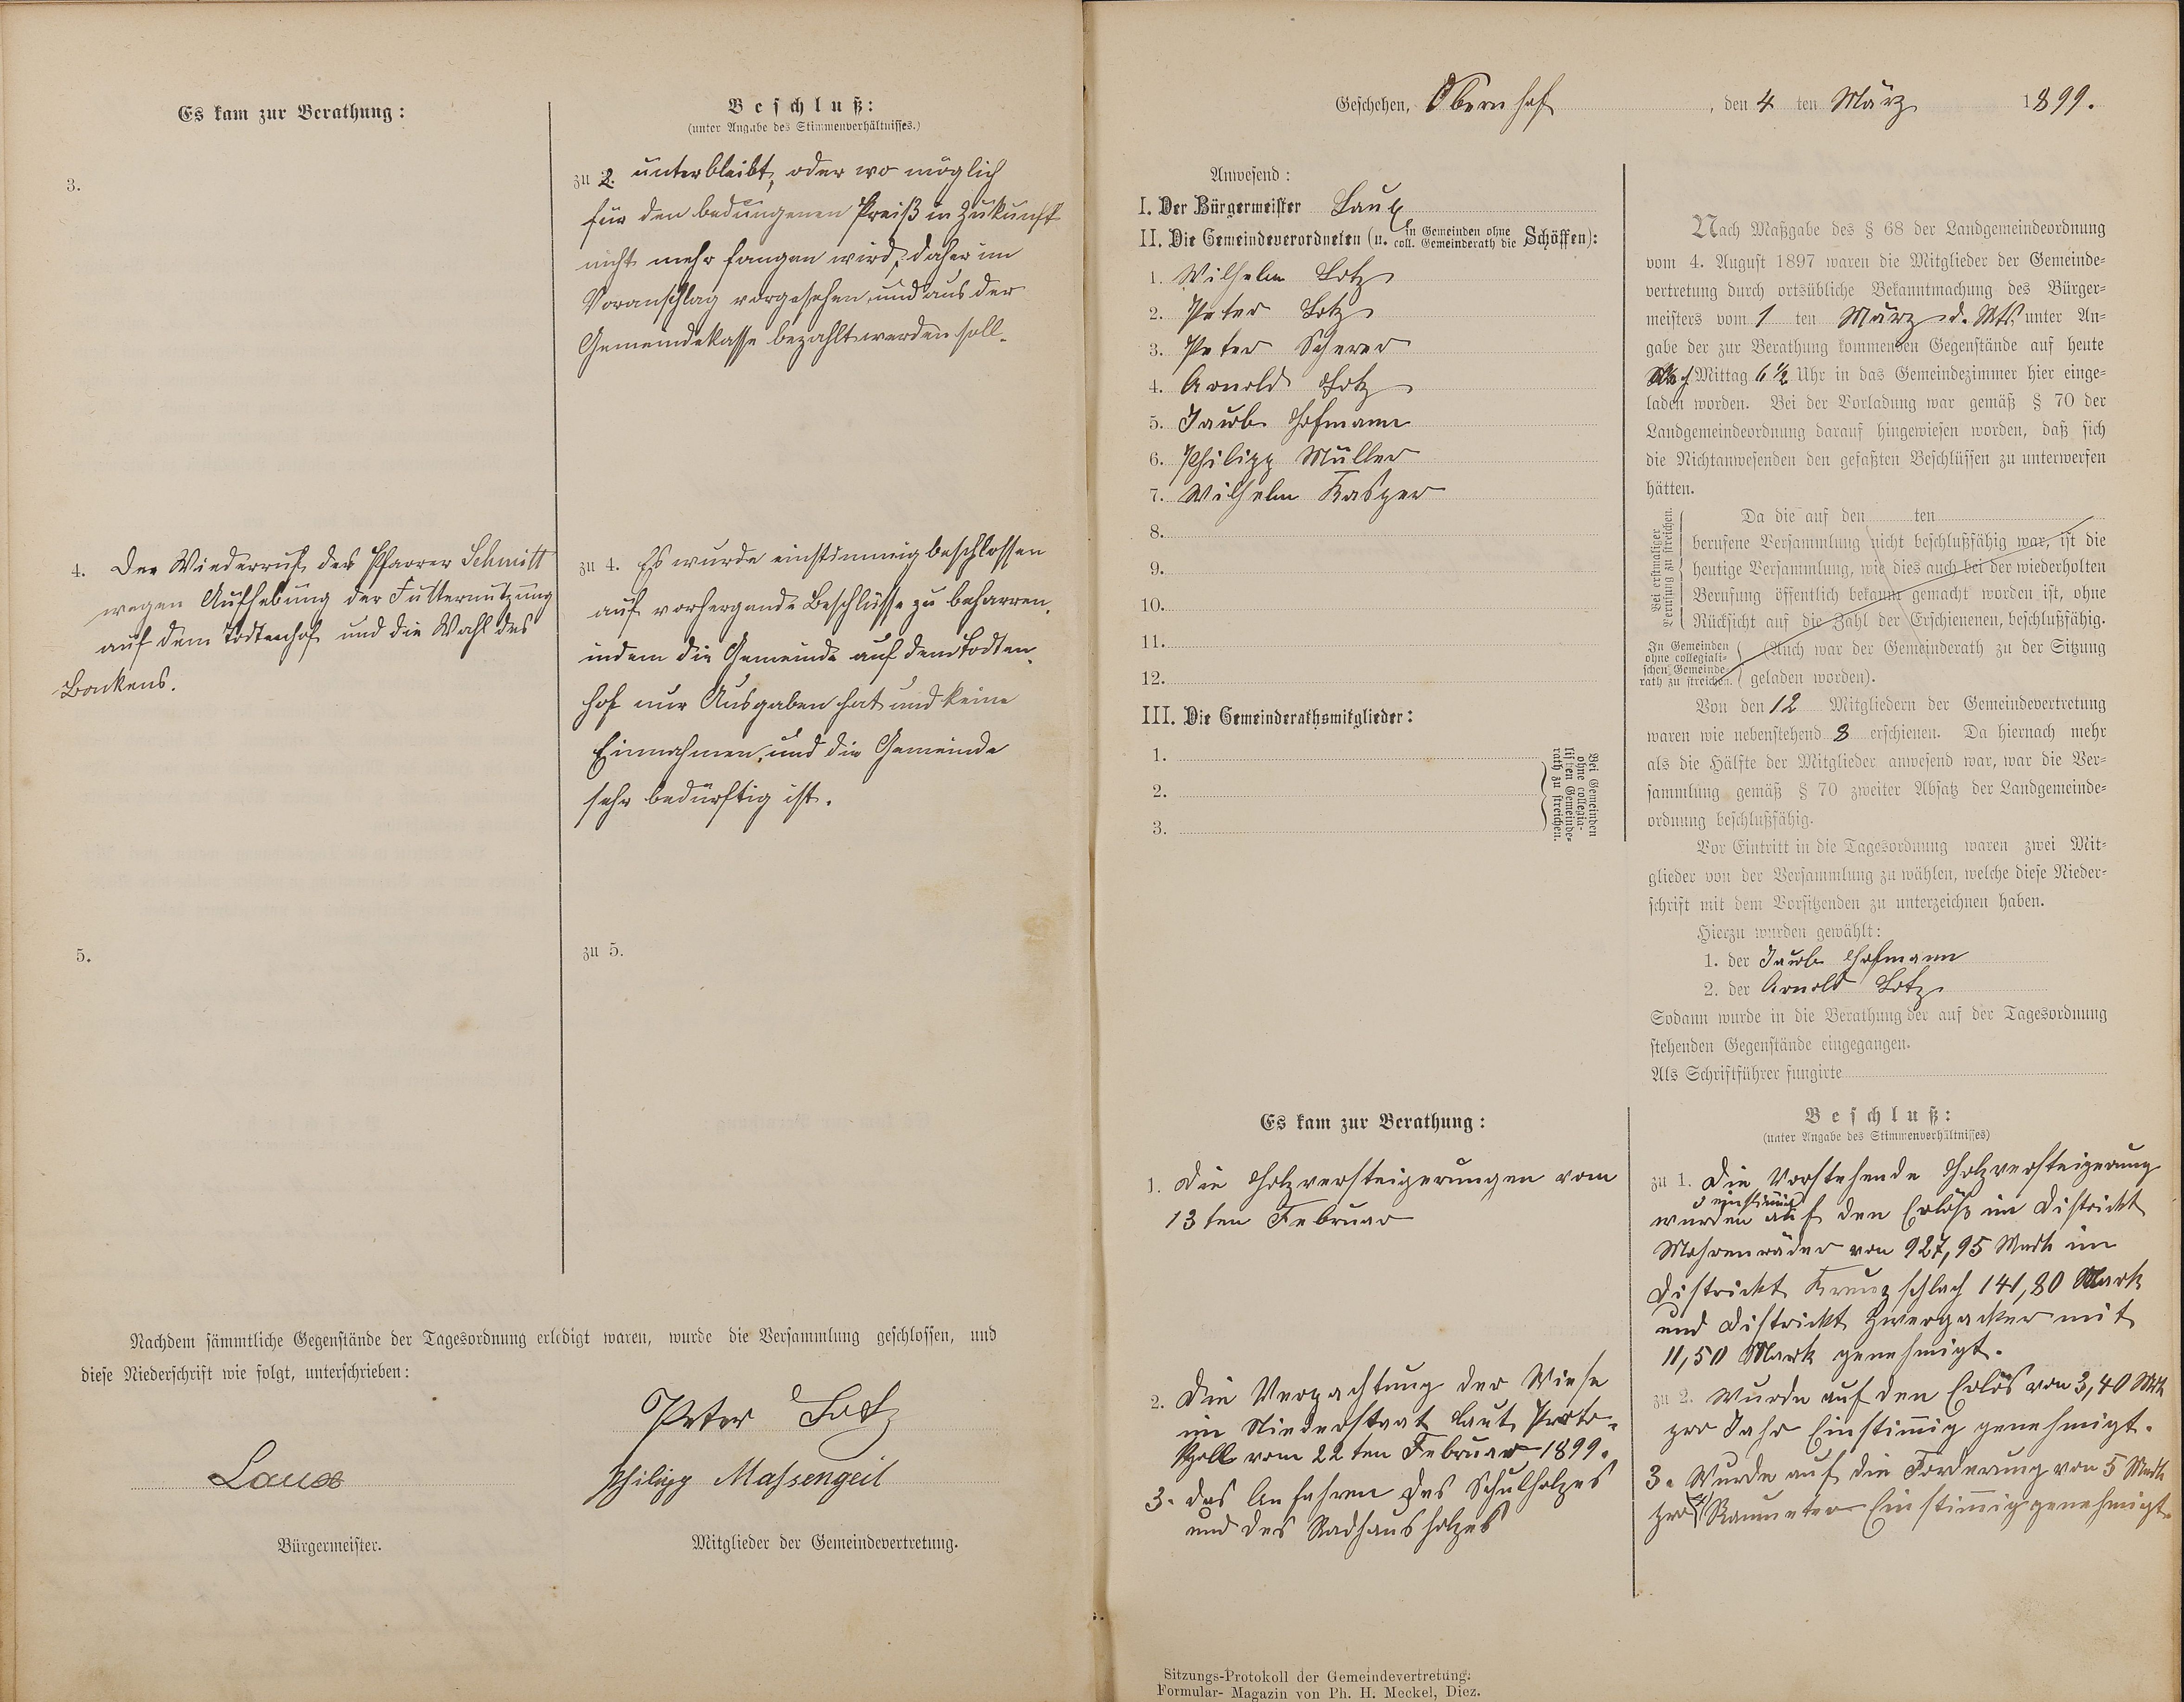 Es kam zur Berathung:
Beschluß:
(unter Angabe des Stimmenverhältnisses.)
3.
zu 2. unterbleibt, oder wo möglich
für den bedungenen Preiß in Zukunft
nicht mehr fangen wird, daher im
Voranschlag vorgesehen und aus der
Gemeindekasse bezahlt werden soll.
4. Der Wiederruf des Pfarrer Schmitt
wegen Aufhebung der Futternutzung
auf dem Todtenhof und die Wahl des
zu 4. Es wurde einstimmig beschlossen
auf vorhergande Beschlüsse zu beharren,
indem die Gemeinde auf dem Todten-
hof nur Ausgaben hat und keine
Einnahmen, und die Gemeinde
sehr bedürftig ist.
5.
zu 5.
Nachdem sämmtliche Gegenstände der Tagesordnung erledigt waren, wurde die Versammlung geschlossen, und
diese Niederschrift wie folgt, unterschrieben:
Peter Lotz
Laux
Philipp Massengeil
Bürgermeister.
Mitglieder der Gemeindevertretung.
Geschehen, Obernhof, den 4 ten März 1899.
Anwesend:
I. Der Bürgermeister Laux
II. Die Gemeindeverordneten (u. in Gemeinden ohne coll. Gemeinderath die Schöffen):
1. Wilhelm Lotz
2. Peter Lotz
3. Peter Scherer
4. Arnold Lotz
5. Jacob Hofmann
6. Philipp Müller
7. Wilhelm Kasper
8.
9.
10.
11.
12.
III. Die Gemeinderathsmitglieder:
1.
2.
3.
Bei Gemeinden
ohne collegia-
lischen Gemeinde-
rath zu streichen.
Nach Maßgabe des § 68 der Landgemeindeordnung
vom 4. August 1897 waren die Mitglieder der Gemeinde-
vertretung durch ortsübliche Bekanntmachung des Bürger-
meisters vom 1 ten März d. Mts. unter An-
gabe der zur Berathung kommenden Gegenstände auf heute
Nach Mittag 6 ½ Uhr in das Gemeindezimmer hier einge-
laden worden. Bei der Vorladung war gemäß § 70 der
Landgemeindeordnung darauf hingewiesen worden, daß sich
die Nichtanwesenden den gefaßten Beschlüssen zu unterwerfen
hätten.
Bei erstmaliger
Berufung zu streichen.
Da die auf den ten
berufene Versammlung nicht beschlußfähig war, ist die
heutige Versammlung, wie dies auch bei der wiederholten
Berufung öffentlich bekannt gemacht worden ist, ohne
Rücksicht auf die Zahl der Erschienenen, beschlußfähig.
In Gemeinden
ohne collegiali-
schen Gemeinde-
rath zu streichen.
(Auch war der Gemeinderath zu der Sitzung
geladen worden).
Von den 12 Mitgliedern der Gemeindevertretung
waren wie nebenstehend 8 erschienen. Da hiernach mehr
als die Hälfte der Mitglieder anwesend war, war die Ver-
sammlung gemäß § 70 zweiter Absatz der Landgemeinde-
ordnung beschlußfähig.
Vor Eintritt in die Tagesordnung waren zwei Mit-
glieder von der Versammlung zu wählen, welche diese Nieder-
schrift mit dem Vorsitzenden zu unterzeichnen haben.
Hierzu wurden gewählt:
1. der Jacob Hofmann
2. der Arnold Lotz
Sodann wurde in die Berathung der auf der Tagesordnung
stehenden Gegenstände eingegangen.
Als Schriftführer fungirte
Es kam zur Berathung:
1. Die Holzversteigerungen vom
13ten Februar
2. Die Verpachtung der Wiese
im Niederstaat laut Proto-
koll vom 22ten Februar 1899.
3. Das Anfahren des Schulholzes
und des Radhausholzes
Beschluß:
(unter Angabe des Stimmenverhältnisses)
zu 1. Die Vorstehende Holzversteigerung
einstimig
wurden auf den Erlöß im District
von 927,95 Mark im
District Kreuzschlach 141,80 Mark
und District Zwergacker mit
11,50 Mark genehmigt.
zu 2. Wurde auf den Erlös von 3,40 Mrk
pro Jahr Einstimig genehmigt.
3. Wurde auf die Forderung von 5 Mark
pro Raummeter Einstimig genehmigt.
Sitzungs-Protokoll der Gemeindevertretung.
Formular-Magazin von Ph. H. Meckel, Diez.